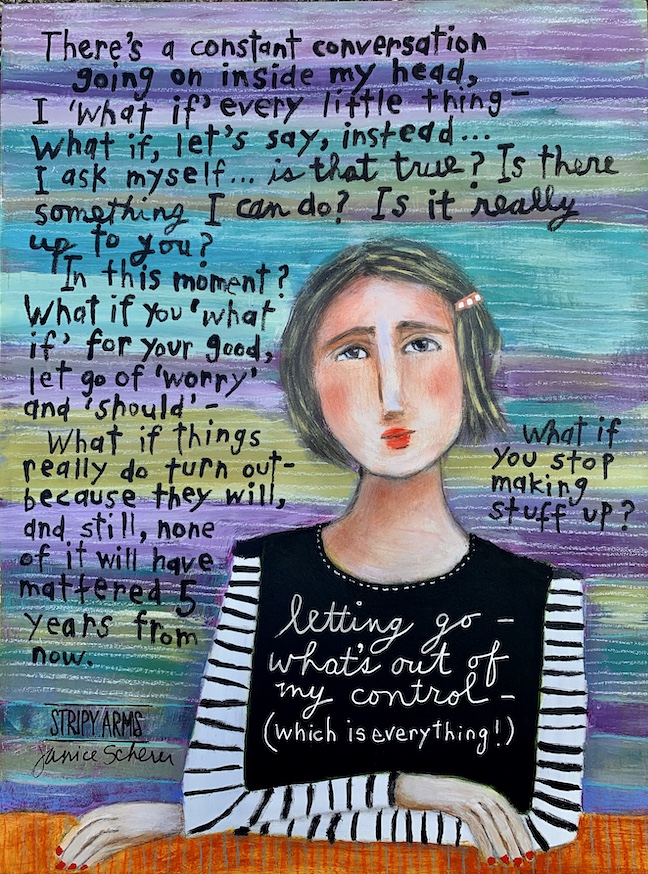 There's a constant conversation
going on inside my head,
I 'what if' every little thing-
What if, let's say, instead...
I ask myself... is that true? Is there
something I can do? Is it really
up to you?
In this moment?
What if you 'what
if' for your good,
let go of 'worry'
and 'should'-
What if things
really do turn out-
because they will,
and still, none
of it will have
mattered 5
years from
now.
What if
you stop
making
stuff up?
letting go -
what's out of
my control -
(which is everything!)
STRIPY ARMS
Janice Scherer